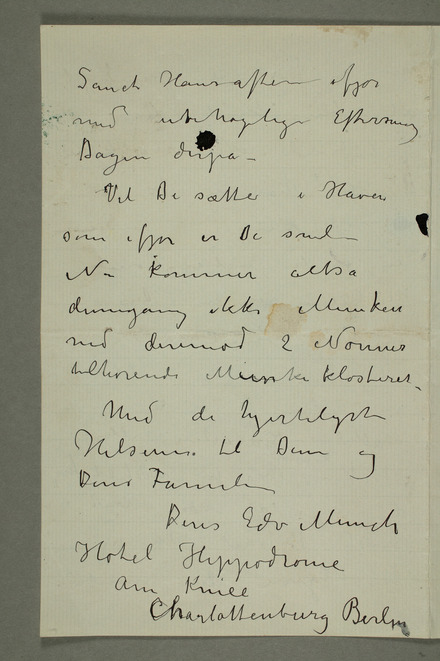 Sanct Hansaften ifjor
med ubehagelige Eftersmag
Dagen derpa –
Vil De sætte i Haven
som ifjor er De snil –
Nu kommer altsa
denngang ikke Munken
med derimod 2 Nonner
tilhørende Munkeklosteret –
Med de hjerteligste
Hilsener til Dem og
Deres Familie
Deres Edv Munch
Hotel Hippodrome
am Kniee
Charlottenburg Berlin